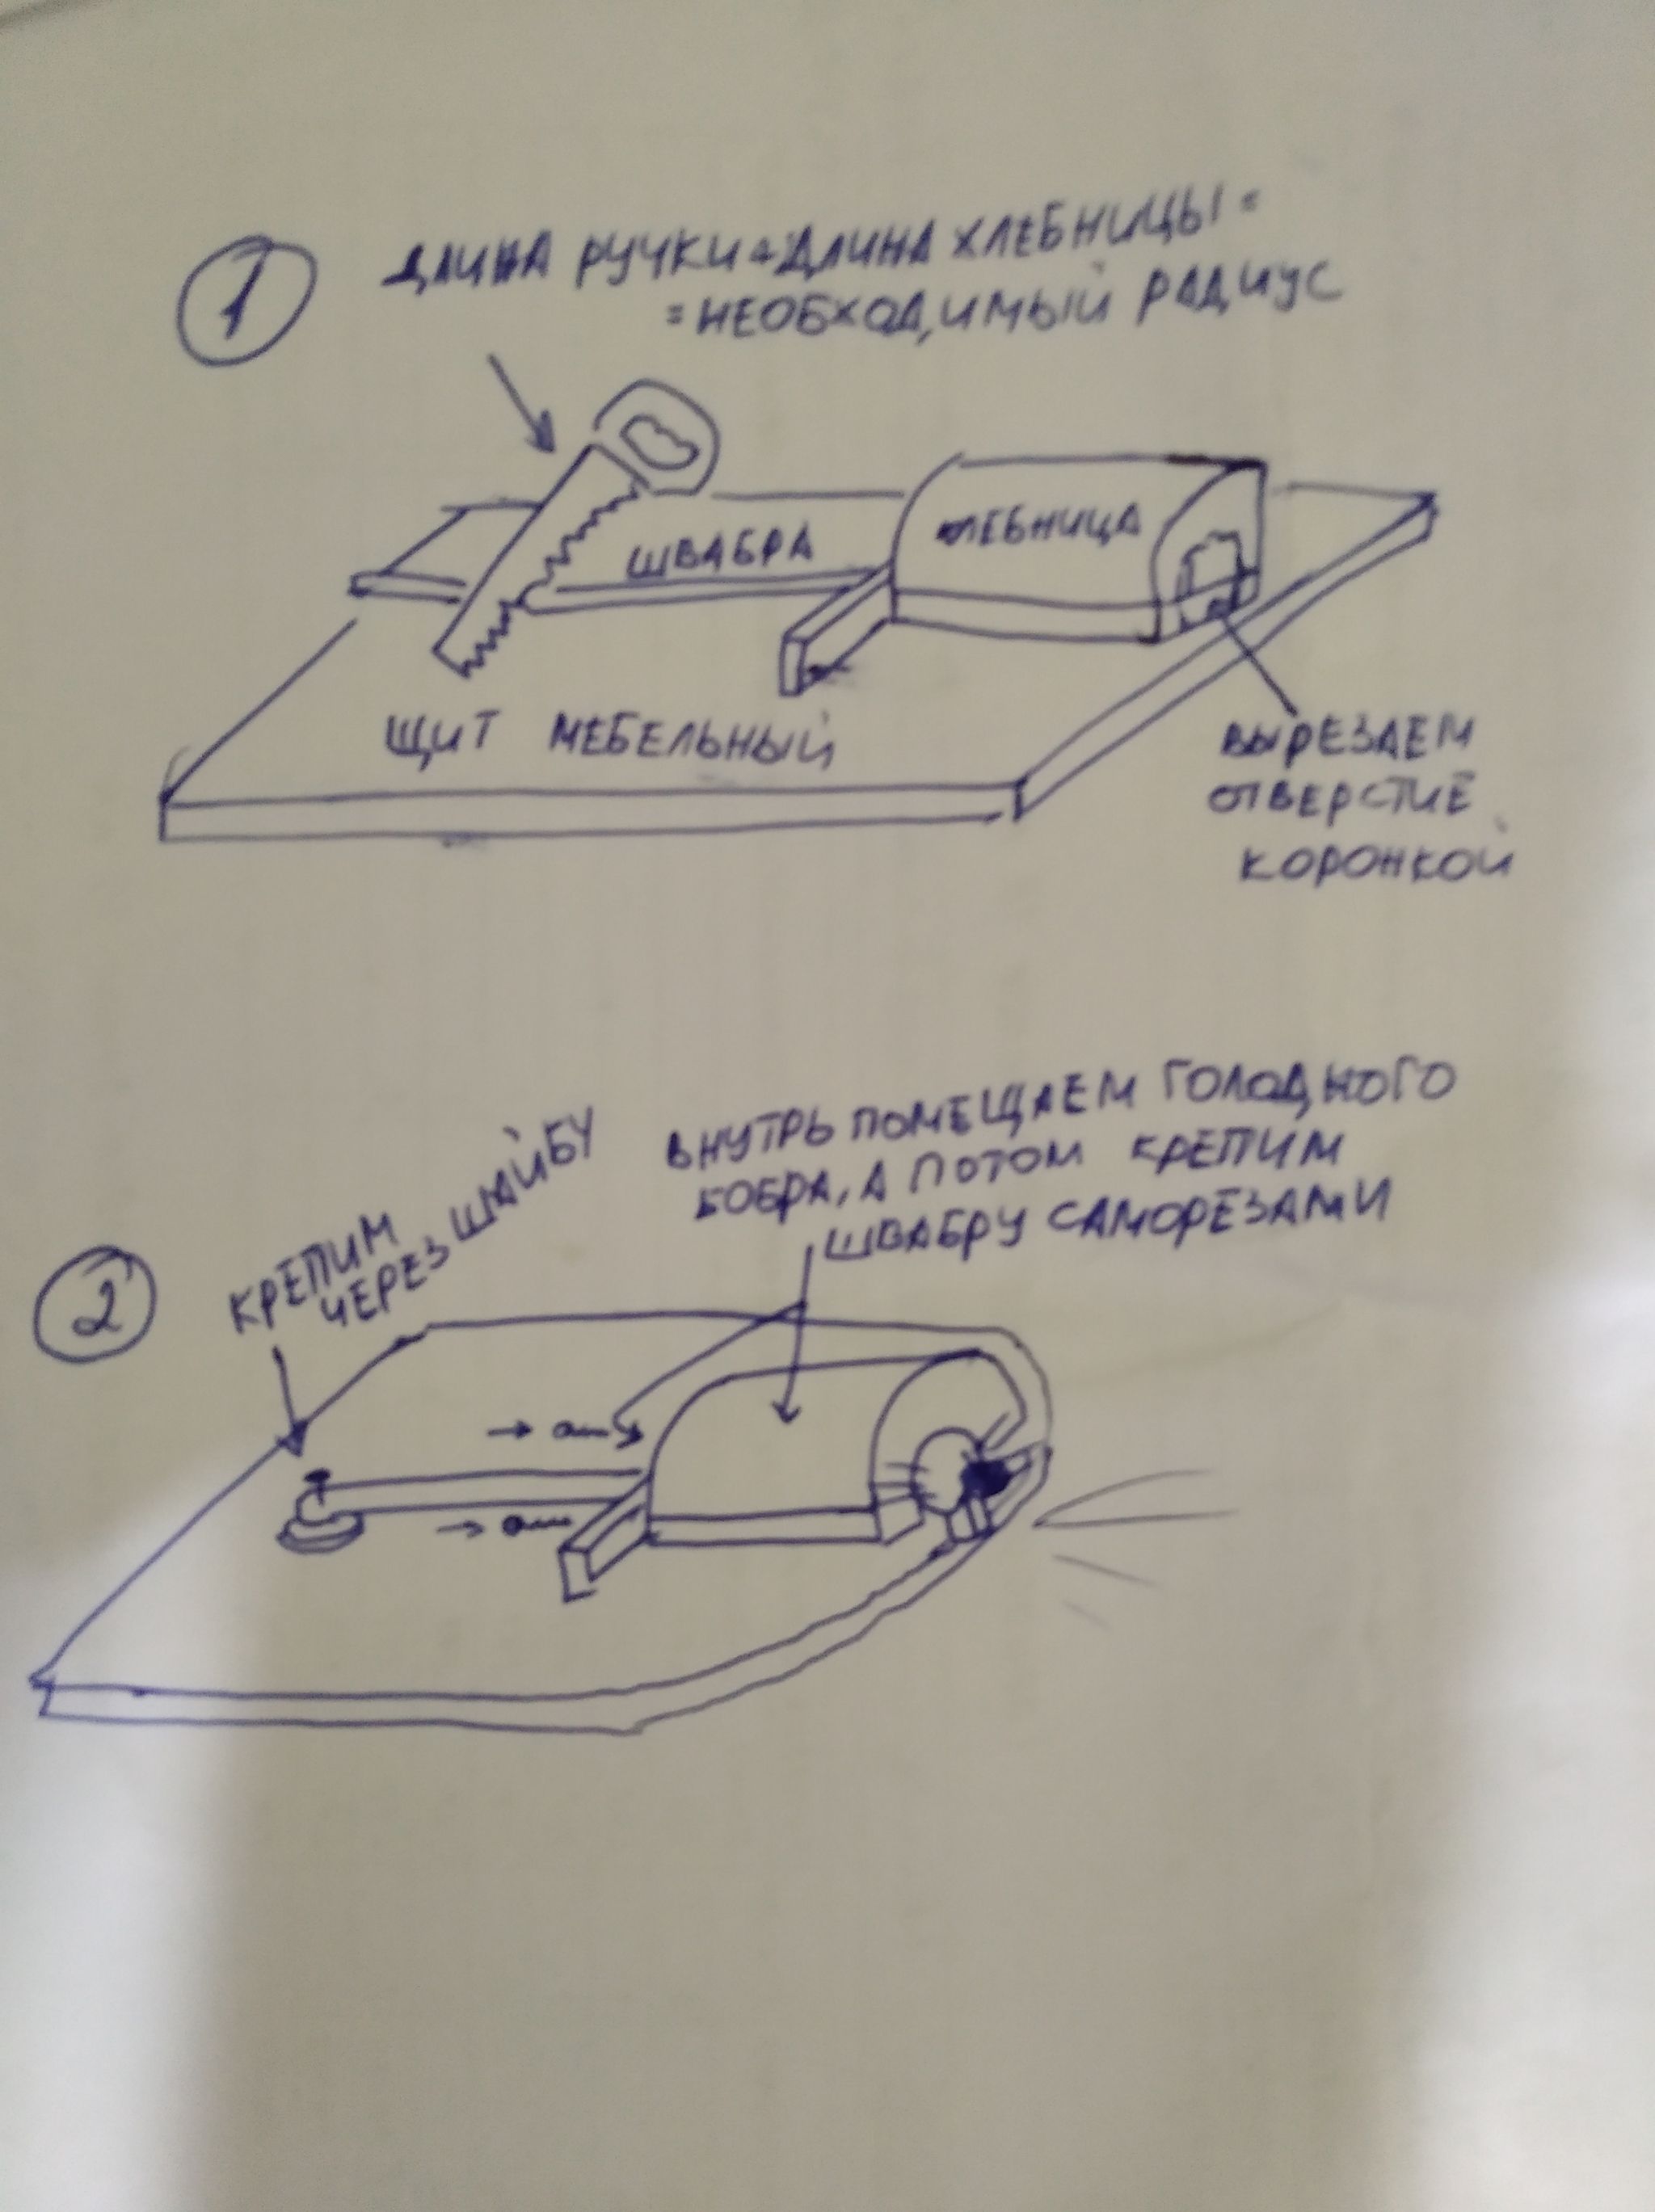 1
ДЛИНА РУЧКИ + ДЛИНА ХЛЕБНИЦЫ =
= НЕОБХОДИМЫЙ РАДИУС
ШВАБРА
ХЛЕБНИЦА
ЩИТ МЕБЕЛЬНЫЙ
ВЫРЕЗАЕМ
ОТВЕРСТИЕ
КОРОНКОЙ
2
КРЕПИМ
ЧЕРЕЗ ШАЙБУ
ВНУТРЬ ПОМЕЩАЕМ ГОЛОДНОГО
БОБРА, А ПОТОМ КРЕПИМ
ШВАБРУ САМОРЕЗАМИ